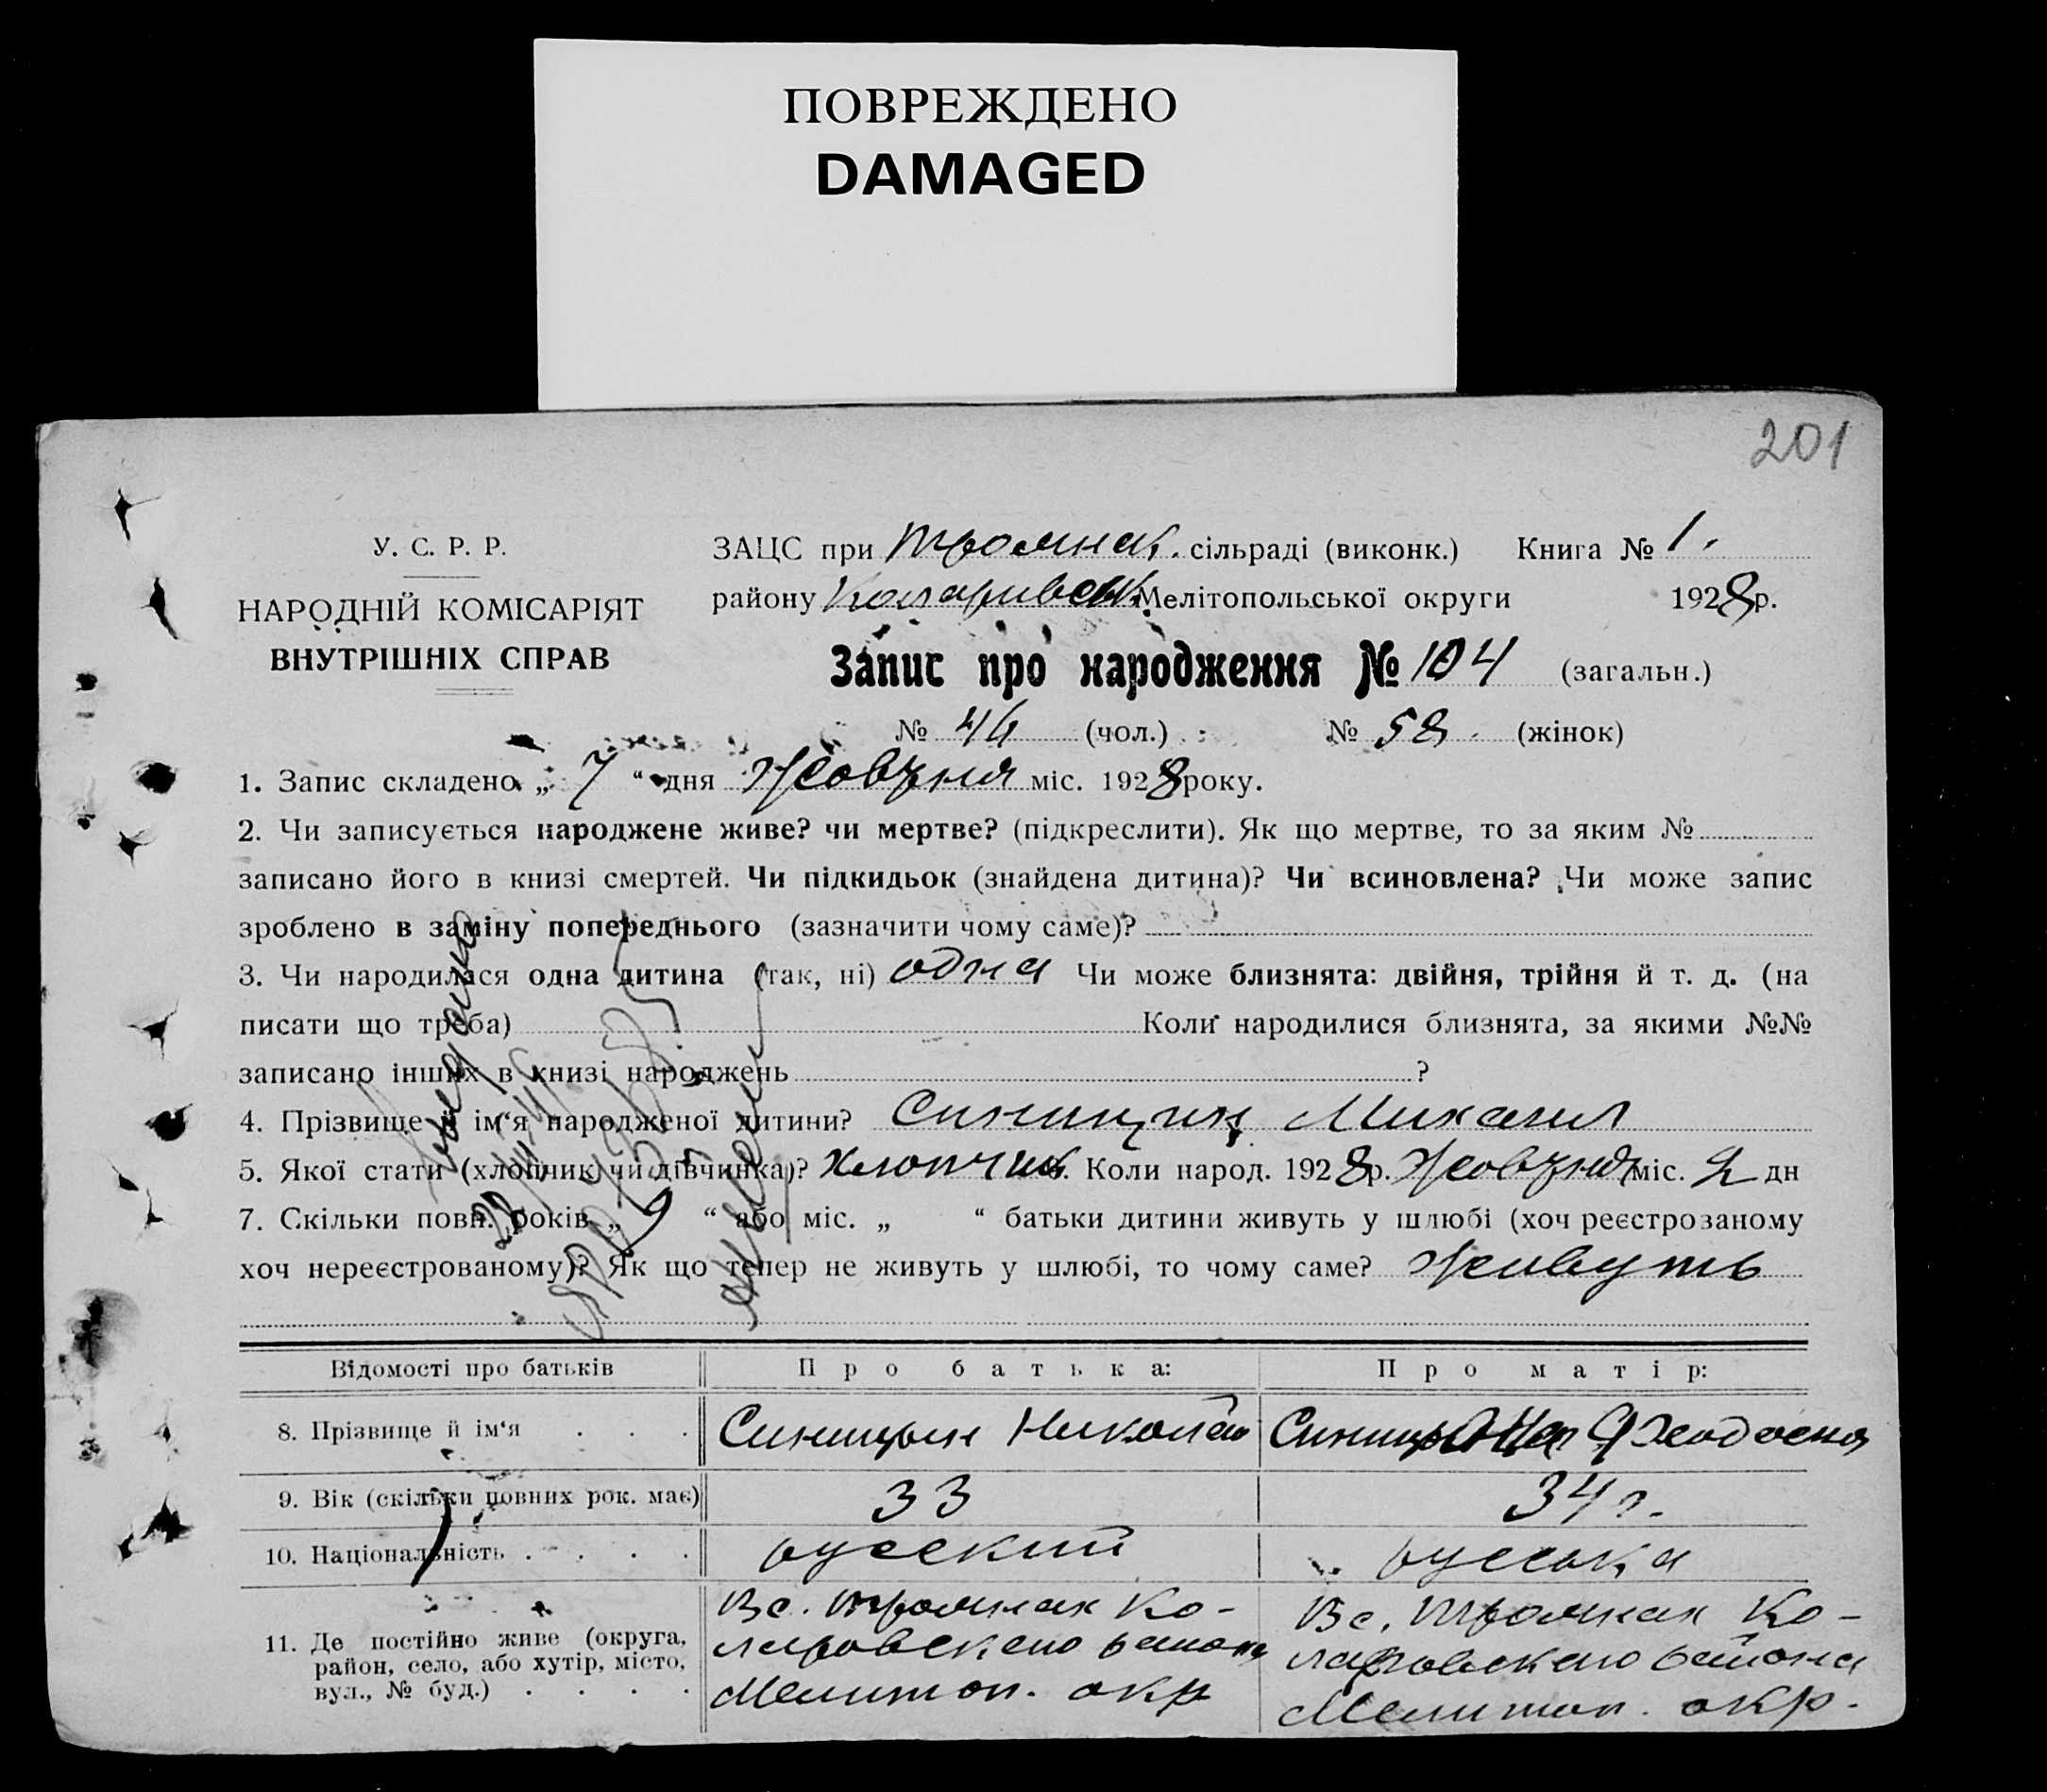 ПОВРЕЖДЕНО
DAMAGED
201
У. С. Р. Р.
НАРОДНІЙ КОМІСАРІЯТ
ВНУТРІШНІХ СПРАВ
ЗАЦС при Трояннак. сільраді (виконк.) Книга № 1.
району Коларивськ Мелітопольської округи 1928 р.
Запис про народження № 104 (загальн.)
№ 46 (чол.) № 58. (жінок)
1. Запис складено „ 7 “ дня Жовтня міс. 1928 року.
2. Чи записується народжене живе? чи мертве? (підкреслити). Як що мертве, то за яким №
записано його в книзі смертей. Чи підкидьок (знайдена дитина)? Чи всиновлена? Чи може запис
зроблено в заміну попереднього (зазначити чому саме)?
3. Чи народилася одна дитина (так, ні) одна Чи може близнята: двійня, трійня й т. д. (на
писати що треба) Коли народилися близнята, за якими №№
записано інших в книзі народжень ?
4. Прізвище й ім‘я народженої дитини? Синицин Михаил
5. Якої стати (хлопчик чи дівчинка)? Хлопчик. Коли народ. 1928 р. Жовтня міс. 2 дн
7. Скільки повн. років „ 9 “ або міс. „ “ батьки дитини живуть у шлюбі (хоч реєстрозаному
хоч нереєстрованому)? Як що тепер не живуть у шлюбі, то чому саме? живуть
Відомості про батьків Про батька: Про матір:
8. Прізвище й ім‘я . . . Синицын Николай Синицына Феодосия
9. Вік (скільки повних рок. має) 33 34 г.
10. Національність . . . . русский руська
11. Де постійно живе (округа, район, село, або хутір, місто, вул., № буд.) . . . .
В с. Трояннах Ко-
ларовского района
Мелитоп. окр
В с. Трояннах Ко-
ларовского района
Мелитоп. окр.